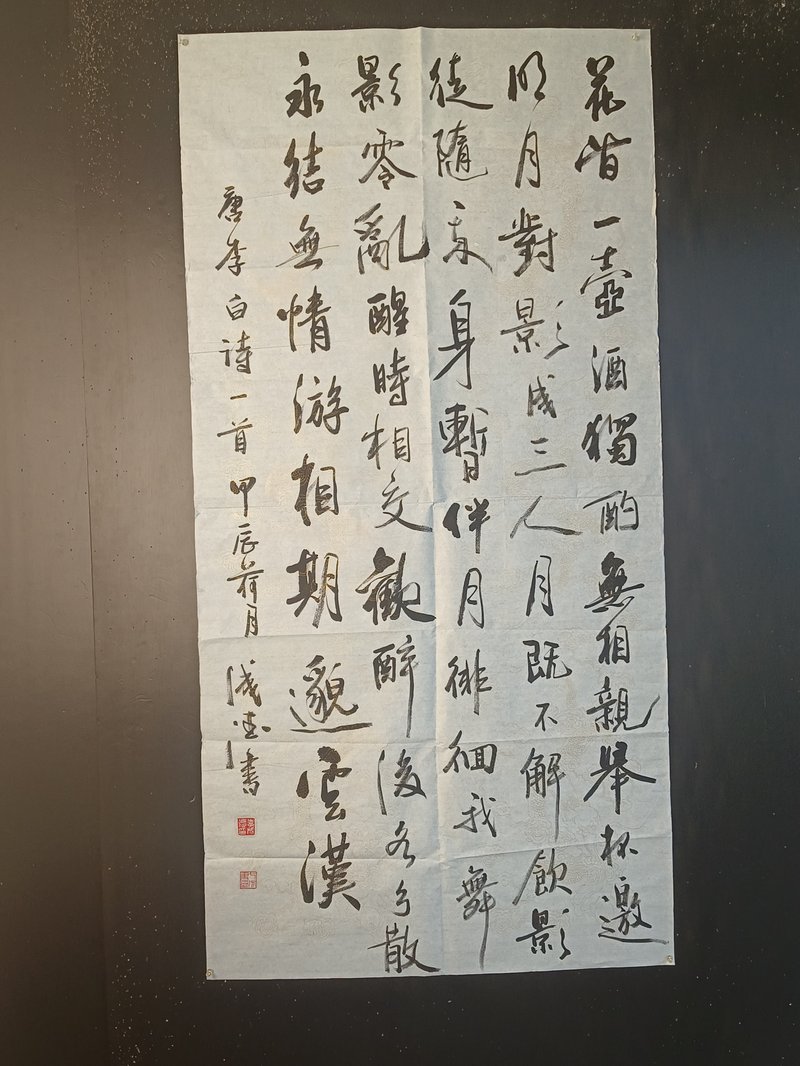 花間一壺酒獨酌無相親舉杯邀
明月對影成三人月既不解飲影
徒隨我身暫伴月徘徊我舞
影零亂醒時相交歡醉後各分散
永結無情游相期邈雲漢
唐李白诗一首甲辰荷月書